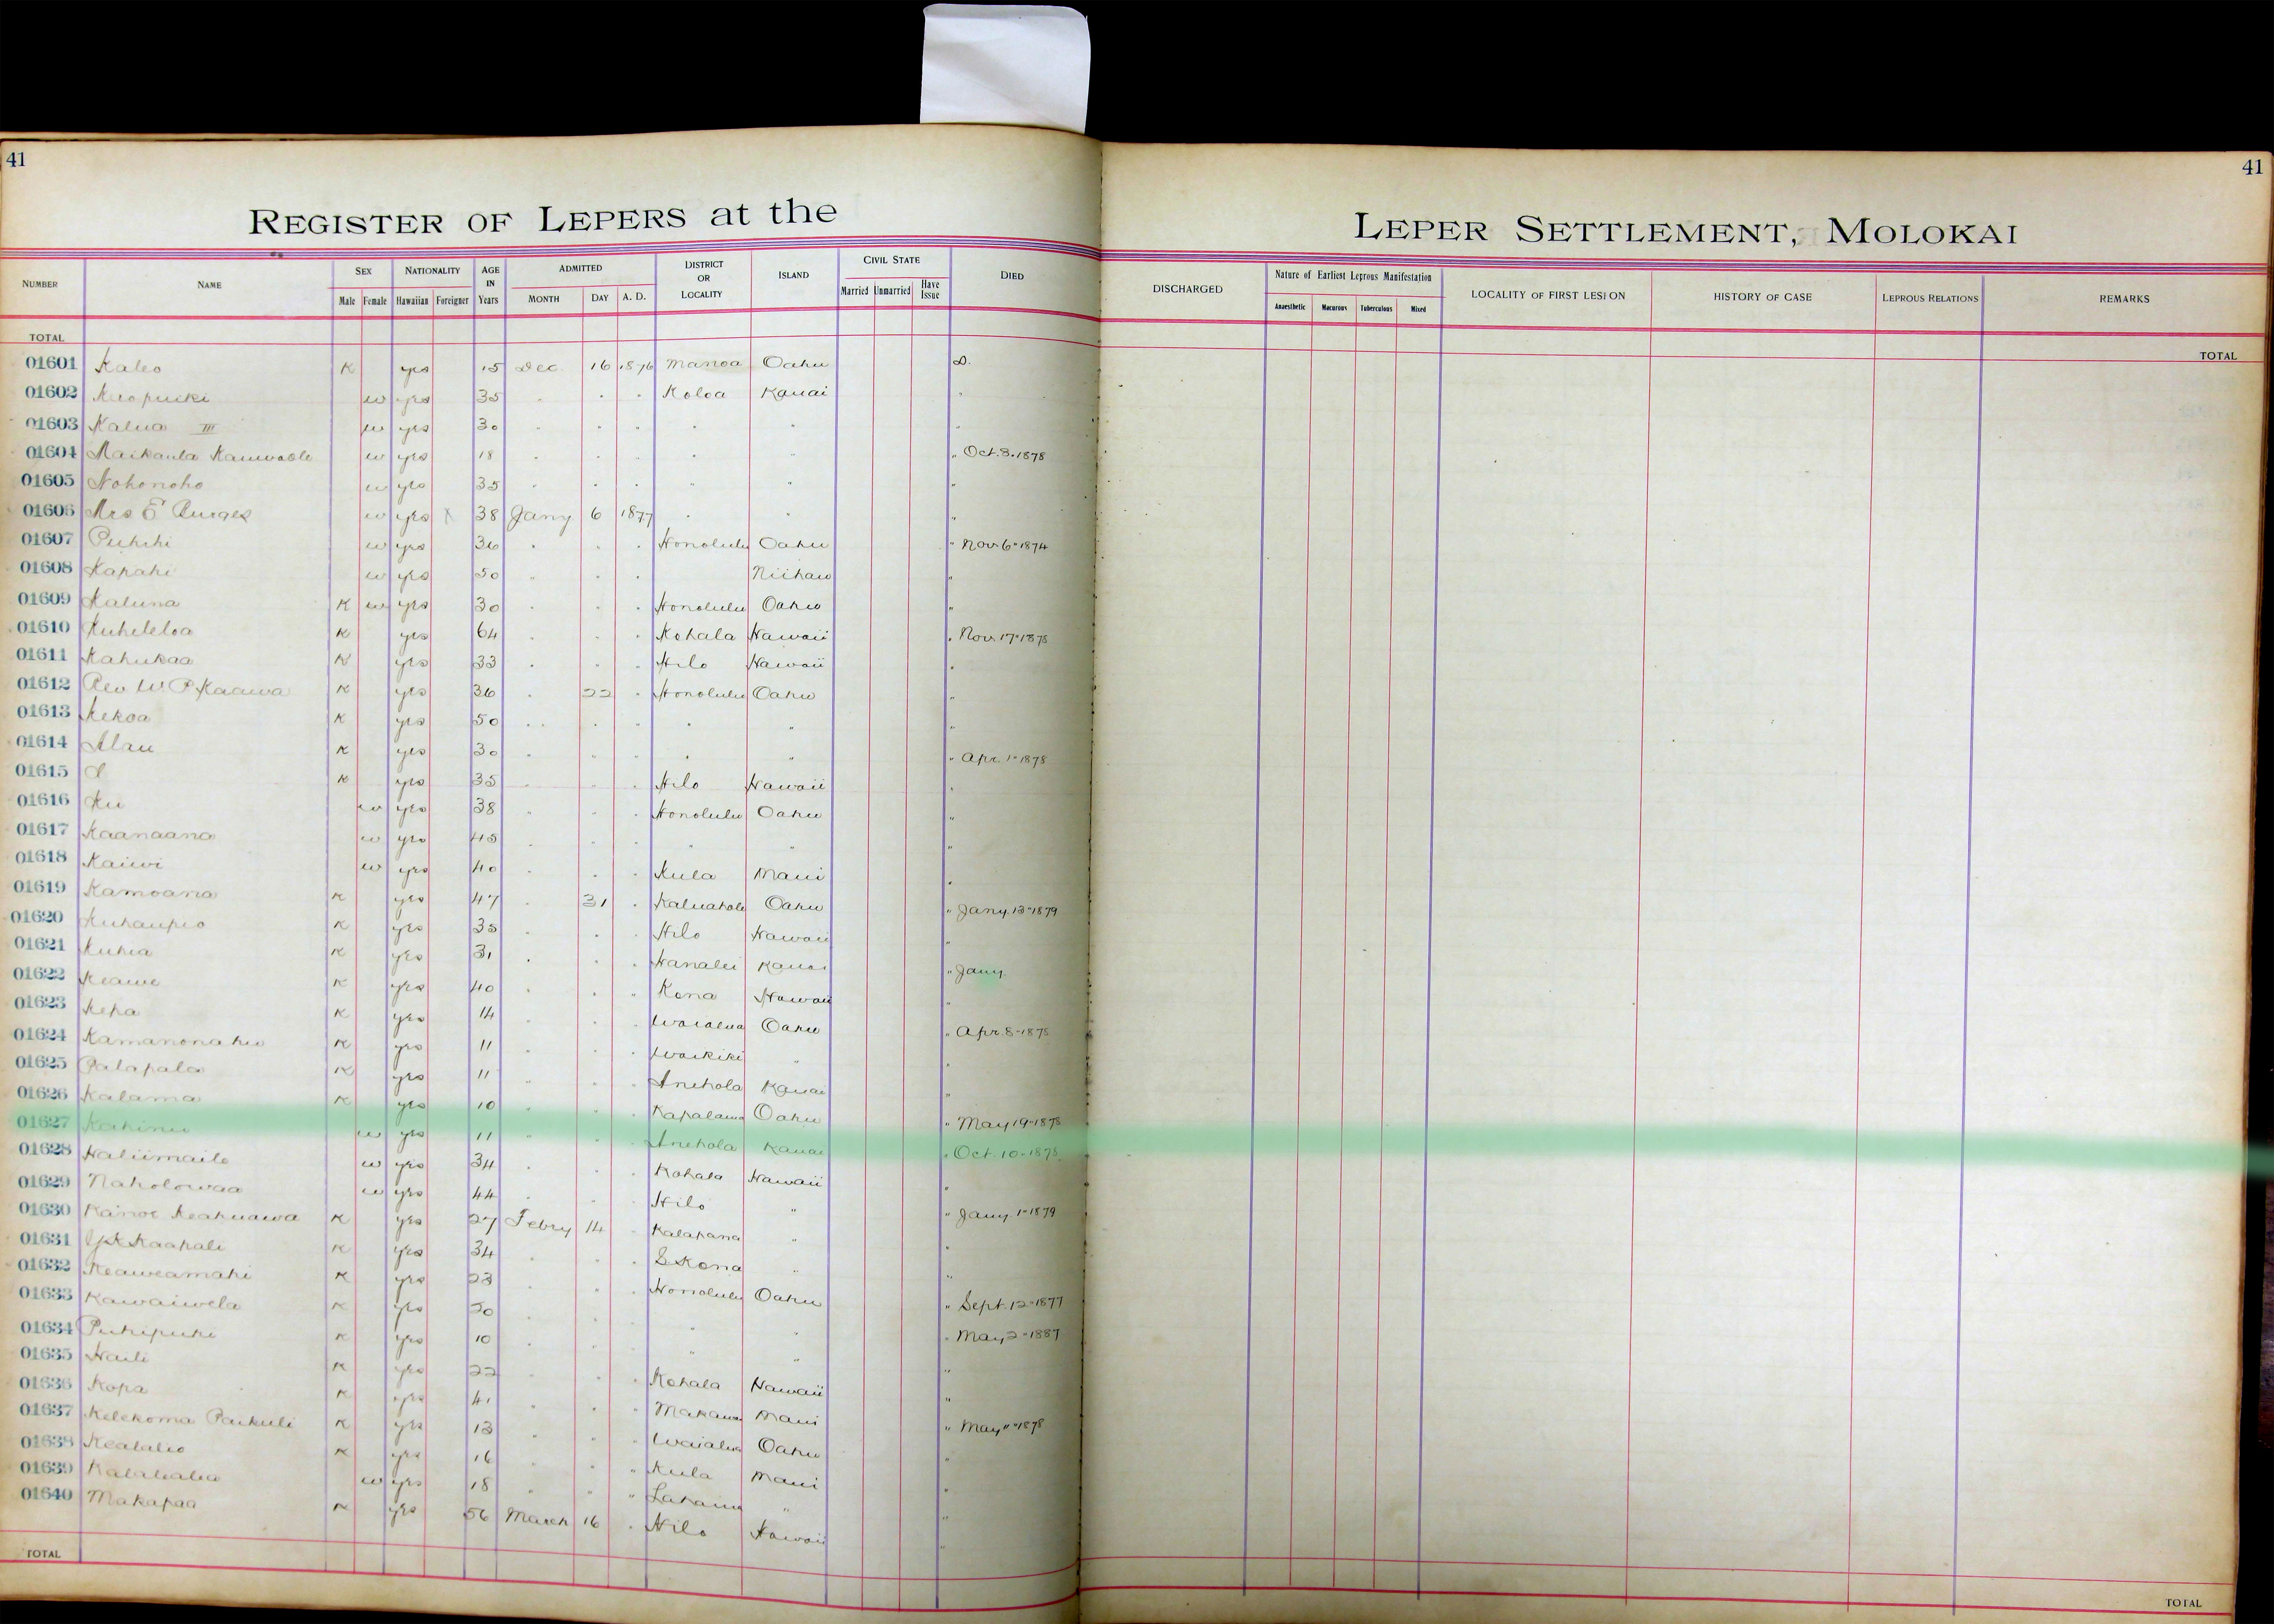 41
41
REGISTER OF LEPERS at the
LEPER SETTLEMENT, MOLOKAI
NUMBER NAME SEX Male Female NATIONALITY Hawaiian Foreigner AGE IN Years ADMITTED MONTH DAY A. D. DISTRICT OR LOCALITY ISLAND CIVIL STATE Married Unmarried Have Issue DIED DISCHARGED Nature of Earliest Leprous Manifestation Anaesthetic Macurous Tuberculous Mixed LOCALITY OF FIRST LESION HISTORY OF CASE LEPROUS RELATIONS REMARKS
TOTAL TOTAL
01601 Kaleo K yes 15 Dec. 16 1876 Manoa Oahu D.
01602 w yes 35 " " " Koloa Kauai "
01603 Kalua III w yes 30 " " " " " "
01604 w yes 18 " " " " " " Oct. 3. 1878
01605 Nohonoho w yes 35 " " " " " "
01606 Mrs E Burges w yes X 38 Jany 6 1877 " " "
01607 Puhihi w yes 36 " " " Honolulu Oahu " Nov 6" 1874
01608 Kapahi w yes 50 " " " Niihau "
01609 Kaluna K w yes 30 " " " Honolulu Oahu "
01610 Kuheleloa K yes 64 " " " Kohala Hawaii " Nov. 17" 1878
01611 Kahukaa K yes 33 " " " Hilo Hawaii "
01612 Rev W. P. Kaawa K yes 36 " 22 " Honolulu Oahu "
01613 Kekoa K yes 50 " " " " " "
01614 Alau K yes 30 " " " " " " Apr. 1" 1878
01615 K yes 35 " " " Hilo Hawaii "
01616 Ku w yes 38 " " " Honolulu Oahu "
01617 Kaanaana w yes 45 " " " " " "
01618 Kaiwi w yes 40 " " " Kula Maui "
01619 Kamoana K yes 47 " 31 " Kaluahole Oahu " Jany. 13" 1879
01620 Kuhaupio K yes 35 " " " Hilo Hawaii "
01621 Kuhia K yes 31 " " " Hanalei Kauai " Jany.
01622 Keawe K yes 40 " " " Kona Hawaii "
01623 Kepa K yes 14 " " " Waialua Oahu " Apr. 8" 1878
01624 K yes 11 " " " Waikiki " "
01625 Palapala K yes 11 " " " Anehola Kauai "
01626 Kalama K yes 10 " " " Kapalama Oahu " May 19" 1878
01627 Kahinu w yes 11 " " " Anehola Kauai " Oct. 10" 1878
01628 Haliimaile w yes 34 " " " Kohala Hawaii "
01629 Naholowaa w yes 44 " " " Hilo " " Jany. 1" 1879
01630 Kanoe Keakuawa K yes 27 Febry 14 " Kalapana " "
01631 Kaahale K yes 34 " " " S. Kona " "
01632 Keaweamahi K yes 23 " " " Honolulu Oahu " Sept. 12" 1877
01633 Kawaiwela K yes 20 " " " " " " May 2" 1887
01634 Puhipuhi K yes 10 " " " " " "
01635 Haili K yes 22 " " " Kohala Hawaii "
01636 Kopa K yes 41 " " " Makawao Maui " May 11" 1878
01637 Kelekoma Paukuli K yes 13 " " " Waialua Oahu "
01638 Kealalio K yes 16 " " " Kula Maui "
01639 w yes 18 " " " Lahaina " "
01640 Makapaa K yes 56 March 16 " Hilo Hawaii "
TOTAL TOTAL